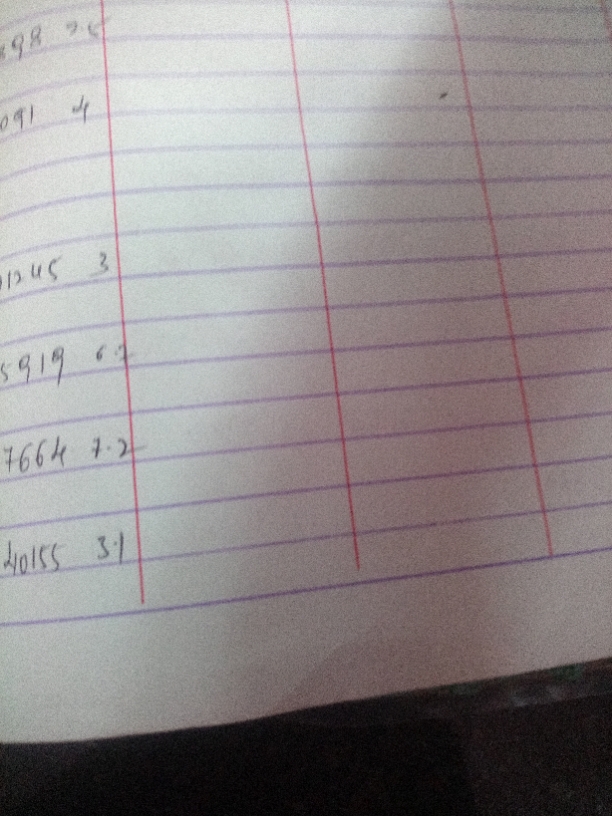 898 25
091 4
1245 3
5919 6.2
7664 7.2
40155 3.1